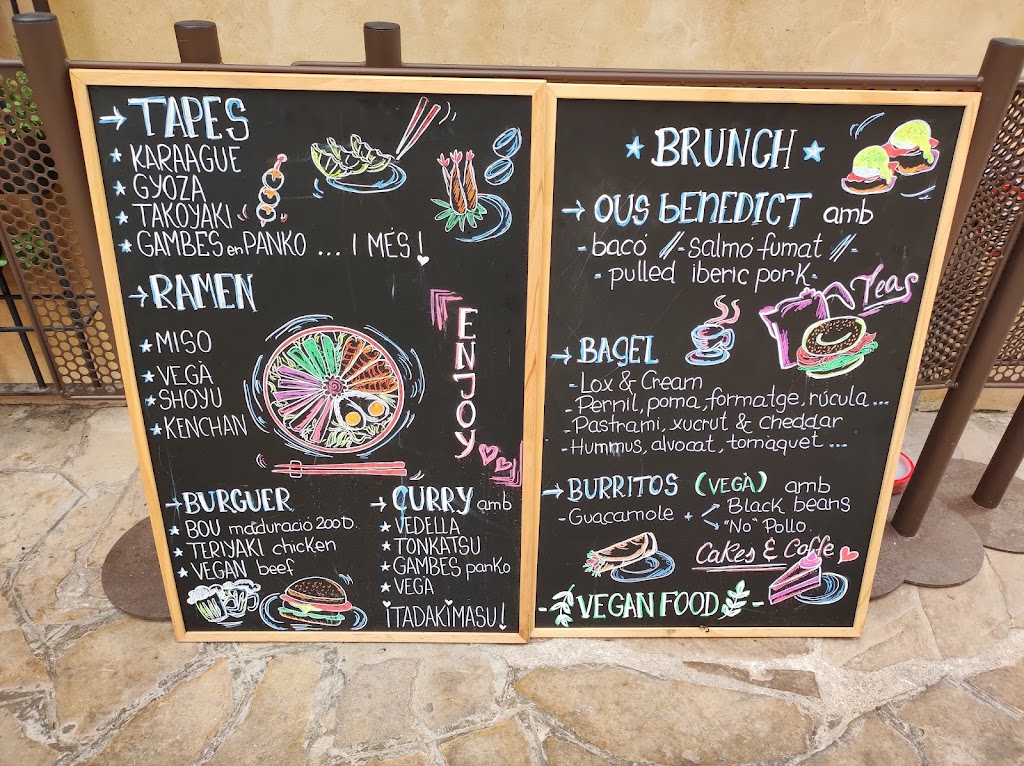 → TAPES
★ KARAAGUE
★ GYOZA
★ TAKOYAKI
★ GAMBES en PANKO ... I MÉS!
→ RAMEN
★ MISO
★ VEGÀ
★ SHOYU
★ KENCHAN
ENJOY
→ BURGUER
★ BOU maduració 200D.
★ TERIYAKI chicken
★ VEGAN beef
→ CURRY amb
★ VEDELLA
★ TONKATSU
★ GAMBES panko
★ VEGA
ITADAKIMASU!
★ BRUNCH ★
→ OUS BENEDICT amb
- bacó // salmó fumat //
- pulled iberic pork -
Teas
→ BAGEL
- Lox & Cream
- Pernil, poma, formatge, rúcula ...
- Pastrami, xucrut & cheddar
- Hummus, alvocat, tomàquet ...
→ BURRITOS (VEGÀ) amb
- Guacamole + < Black beans
"No" Pollo.
Cakes & Coffe
- VEGAN FOOD -